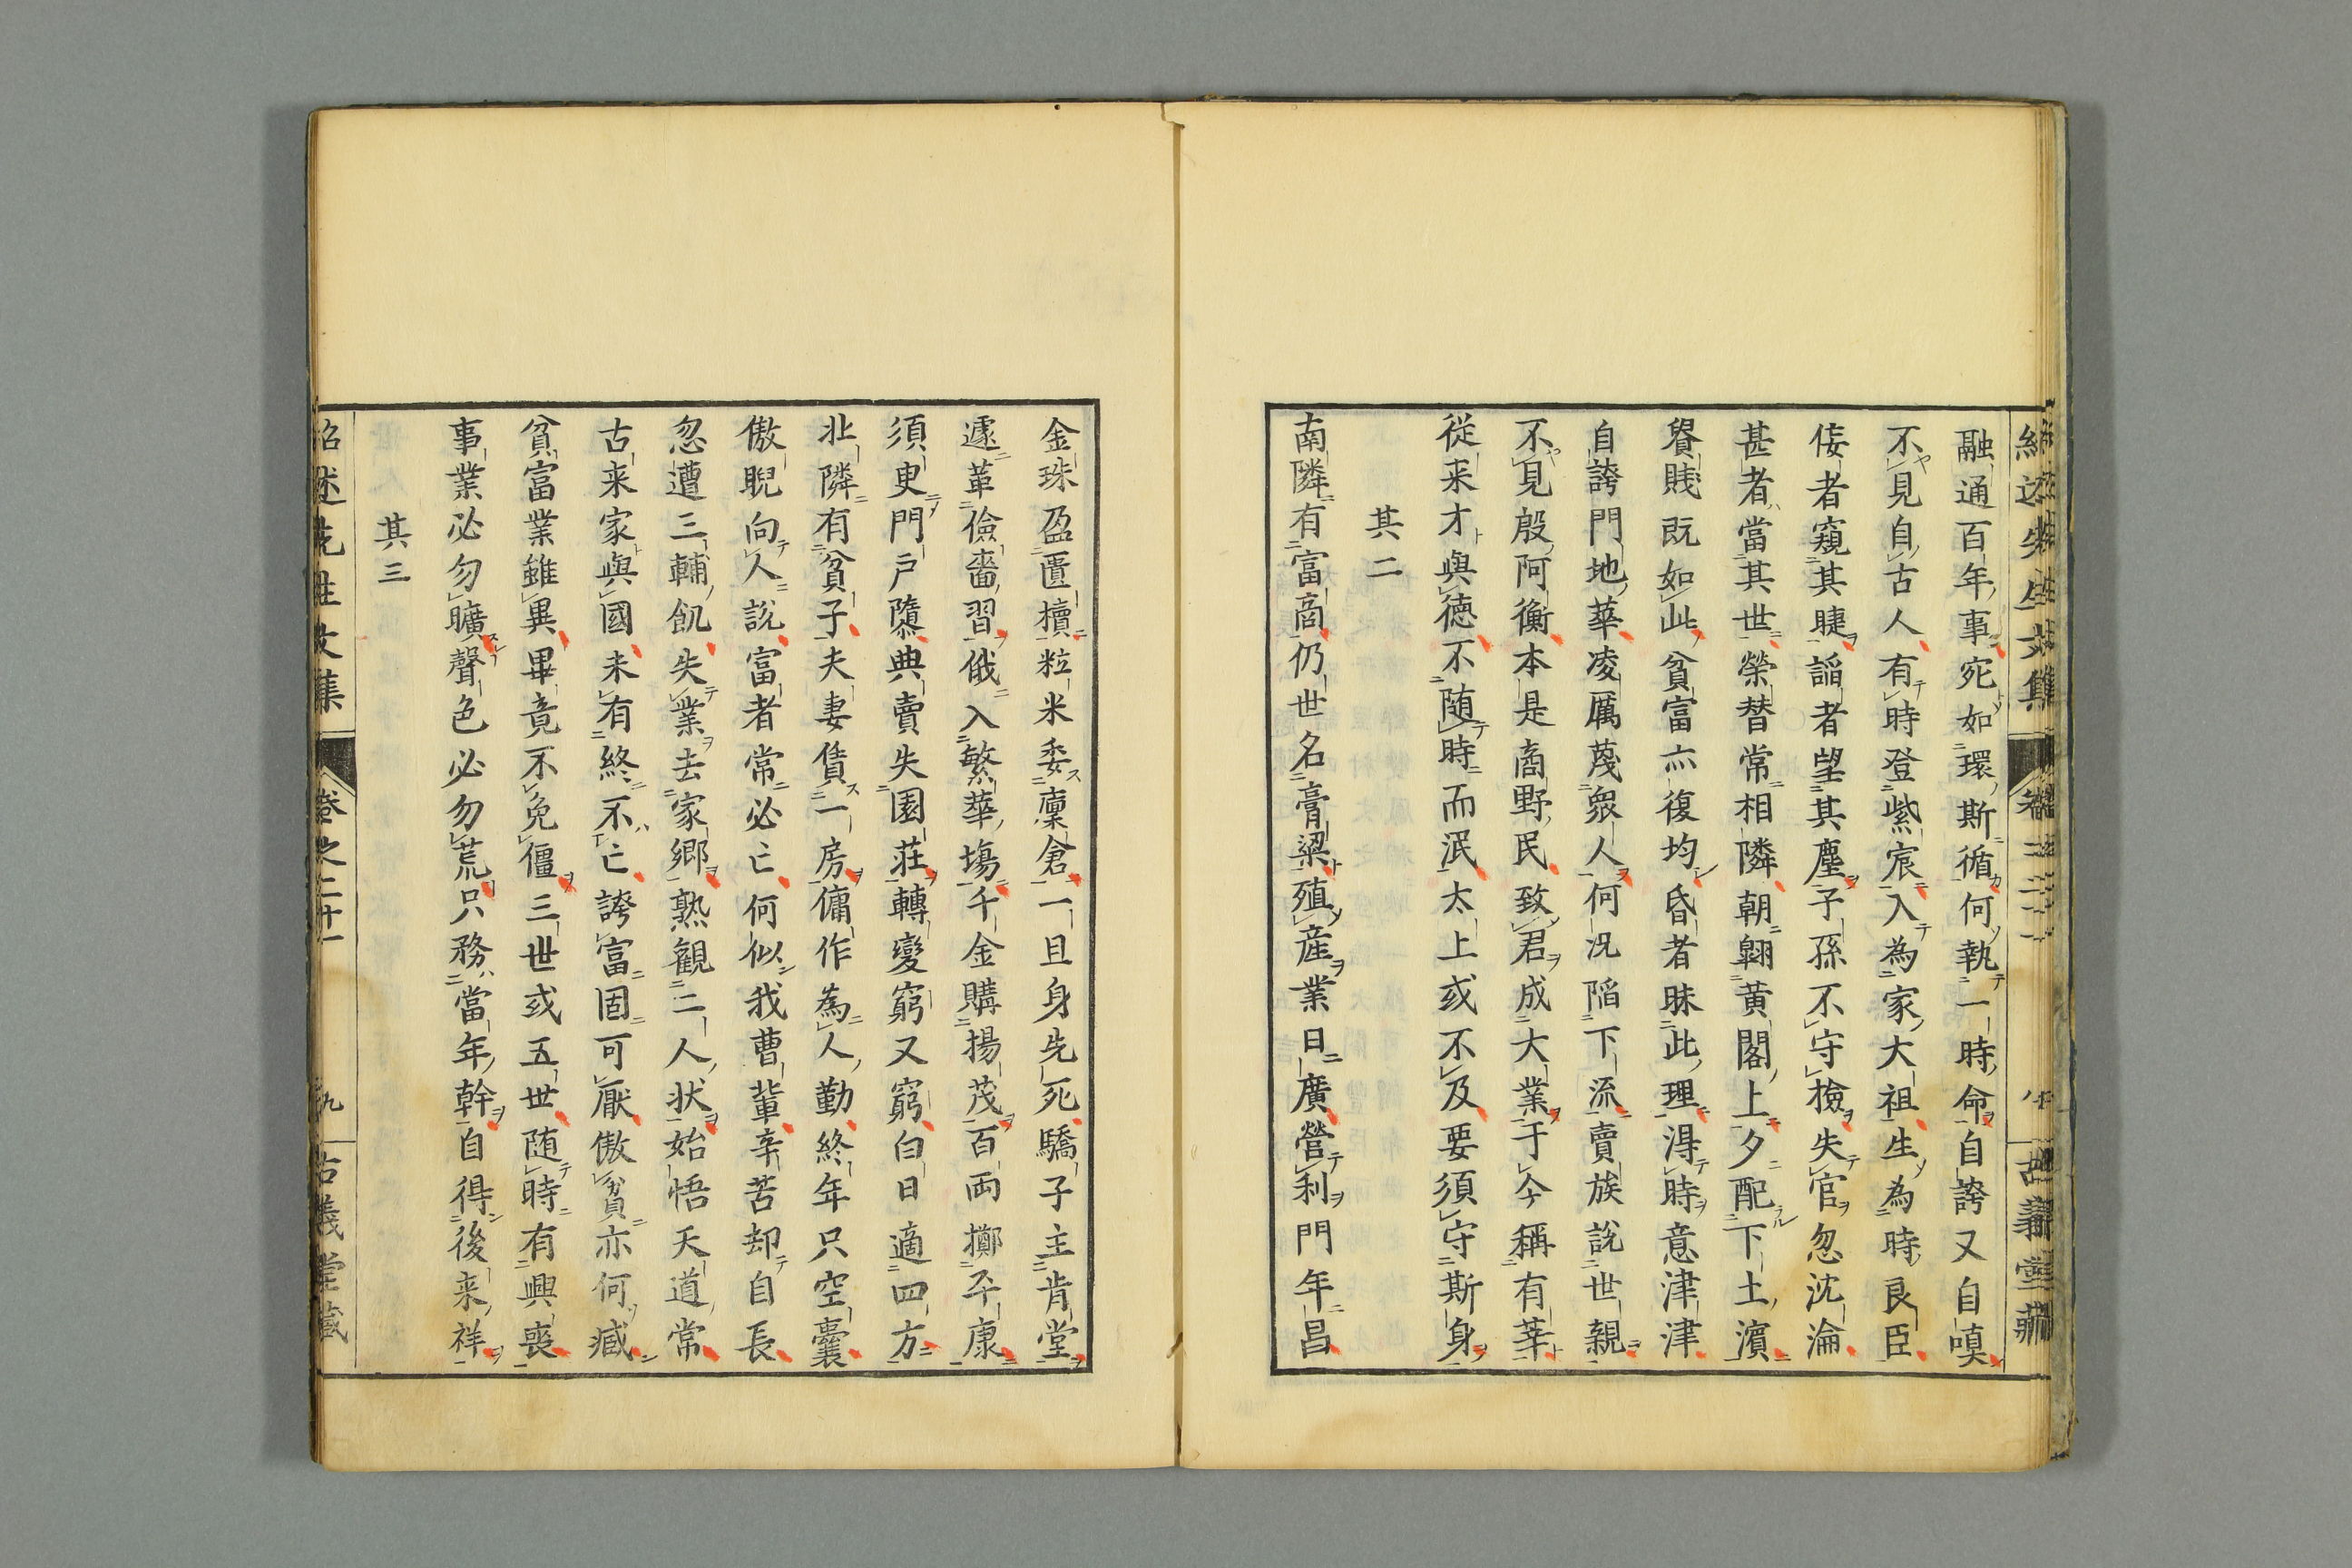 融通百年事宛如環斯循何執一時命自誇又自嗔
不見自古人有時登紫宸入為家大祖生為時良臣
倭者窺其睫謟者望其塵子孫不守撿失官忽沈淪
甚者當其世榮替常相隣朝翱黄閣上夕配下土濵
貴賎既如此貧富亦復均昏者昧此理淂時意津津
自誇門地華凌厲蔑衆人何况陷下流賣族説世親
不見殷阿衡本是商野民致君成大業于今稱有莘
従来才與徳不随時而泯太上或不及要須守斯身
其二
南隣有富商仍世名膏粱殖産業日廣營利門年昌
金珠盈匱櫝粒米委廩倉一旦身先死驕子主肯堂
遽革儉嗇習俄入繁華塲千金購揚茂百両擲平康
須臾門戸隳典賣失園莊轉變窮又窮白日適四方
北隣有貧子夫妻賃一房傭作為人勤終年只空囊
傲睨向人説富者常必亡何似我曹輩辛苦却自長
忽遭三輔飢失業去家郷熟観二人状始悟天道常
古来家與國未有終不亡誇富固可厭傲貧亦何臧
貧富業雖異畢竟不免僵三世或五世随時有興喪
事業必勿曠聲色必勿荒只務當年幹自得後来祥
其三
紹述先生文集 巻之二十一 九 古義堂藏